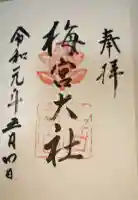 奉拝
梅宮大社
令和元年五月四日